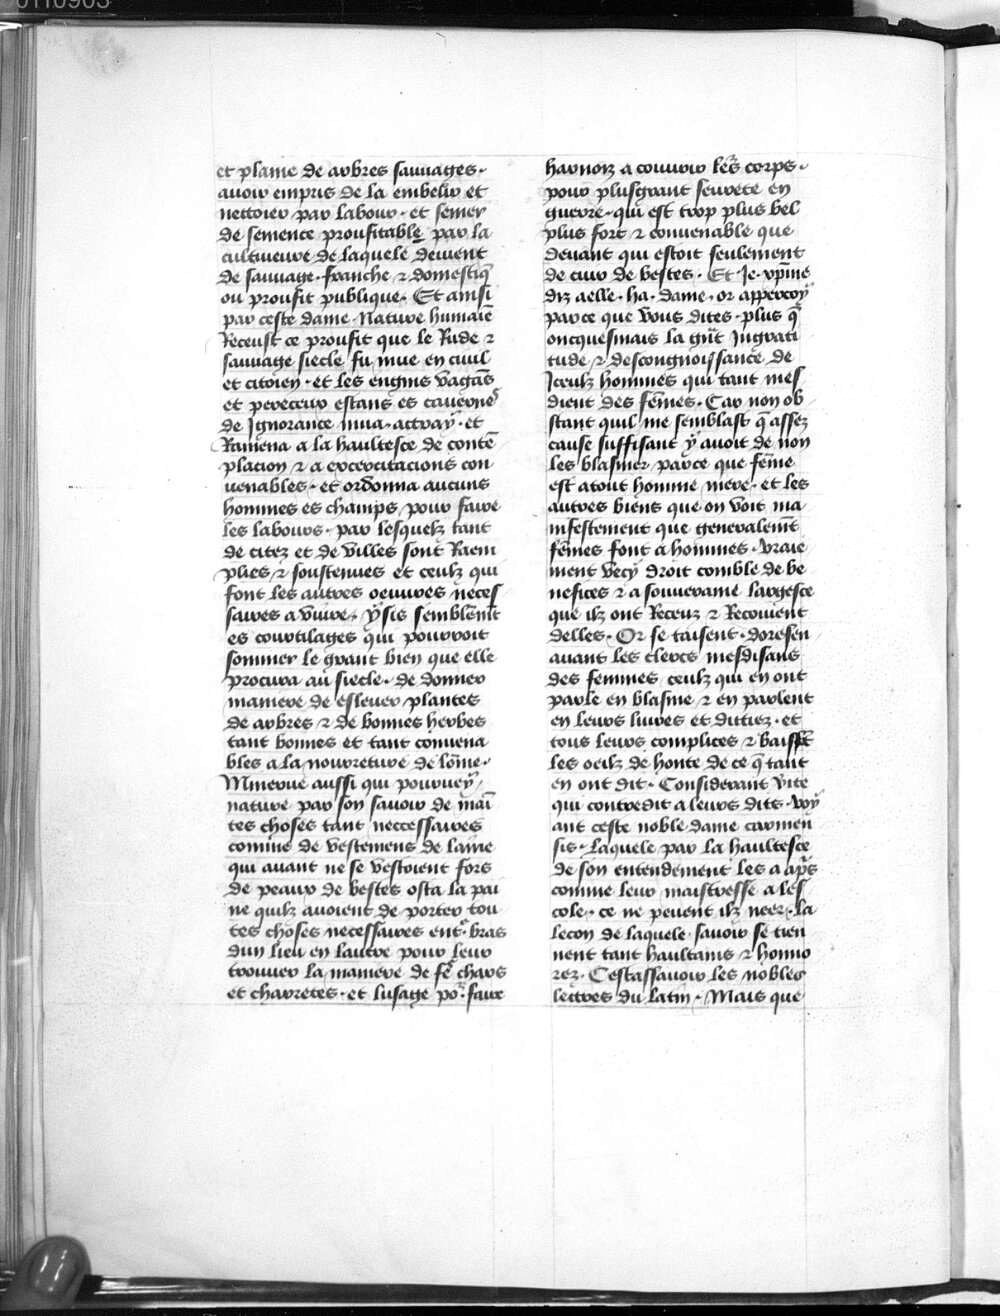 et plaine de arbres sauuages·
auoir empris de la embelir et
nettoier par labour· et semer
de semence proufitable par la
cultiueure de laquele deuient
de sauuage· franche ⁊ domestiq̄
ou proufit publique· Et ainsi
par ceste dame Nature humaiē
Receust ce proufit que le Rude ⁊
sauuage siecle fu mue en ciuil
et citoien· et les engins vagās
et pereceux estans es cauernes
de Ignorance mua· attray· et
Ramena a la haultesce de contē
placion ⁊ a excercitacions con
uenables· et ordonna aucuns
hommes es champs pour faire
les labours· par lesquelz tant
de citez et de villes sont Raem
plies ⁊ soustenues et ceulz qui
font les autres oeuures neces
saires a viure· ysis semblēmt
es courtilages qui pourroit
sommer le grant bien que elle
procura au siecle· de donner
maniere de esleuer plantes
de arbres ⁊ de bonnes herbes
tant bonnes et tant conuena
bles a la nourreture de lōme·
Minerue aussi qui pourueỹ
nature par son sauoir de mai
tes choses tant neccessaires
comme de vestemens de laine
qui auant ne se vestoient fors
de peaux de bestes osta la pai
ne quilz auoient de porter tou
tes choses necessaires entr bras
dun lieu en lautre pour leur
trouuer la maniere de fē chars
et charretes· et lusage por faire
harnoiz a couurir les corps·
pour plusgrant seurete en
guerre· qui est trop plus bel
plus fort ⁊ conuenable que
deuant qui estoit seulement
de cuir de bestes· Et Je xp̄ine
diz aelle· ha· dame· or appercoy
parce que vous dites· plus q̄
oncquesmais la grāt Ingrati
tude ⁊ descongnoissance de
Iceulz hommes qui tant mes
dient des fēmes· Car non ob
stant quil me semblast q̄ assez
cause suffisant y auoit de non
les blasmer parce que fēme
est atout homme mere· et les
autres biens que on voit ma
nifestement que generalemt̄
fēmes font a hommes· vraie
ment vecy droit comble de be
nefices ⁊ a souueraine largesce
que ilz ont Receuz ⁊ Recoiuent
delles· Or se taisent· doresen
auant les clercs mesdisans
des femmes ceulz qui en ont
parle en blasme ⁊ en parlent
en leurs liures et dittiez· et
tous leurs complices ⁊ baissēt
les oeilz de honte de ce q̄ tant
en ont dit· Considerant vite
qui contredit a leurs dits· voy
ant ceste noble dame carmen
sis· laquele par la haultesce
de son entendement les a ap̄s
comme leur maistresse a les
cole· ce ne peuent ilz neer· la
lecon de laquele sauoir se tien
nent tant haultains ⁊ honno
rez· Cestassauoir les nobles
lettres du latin· Mais que